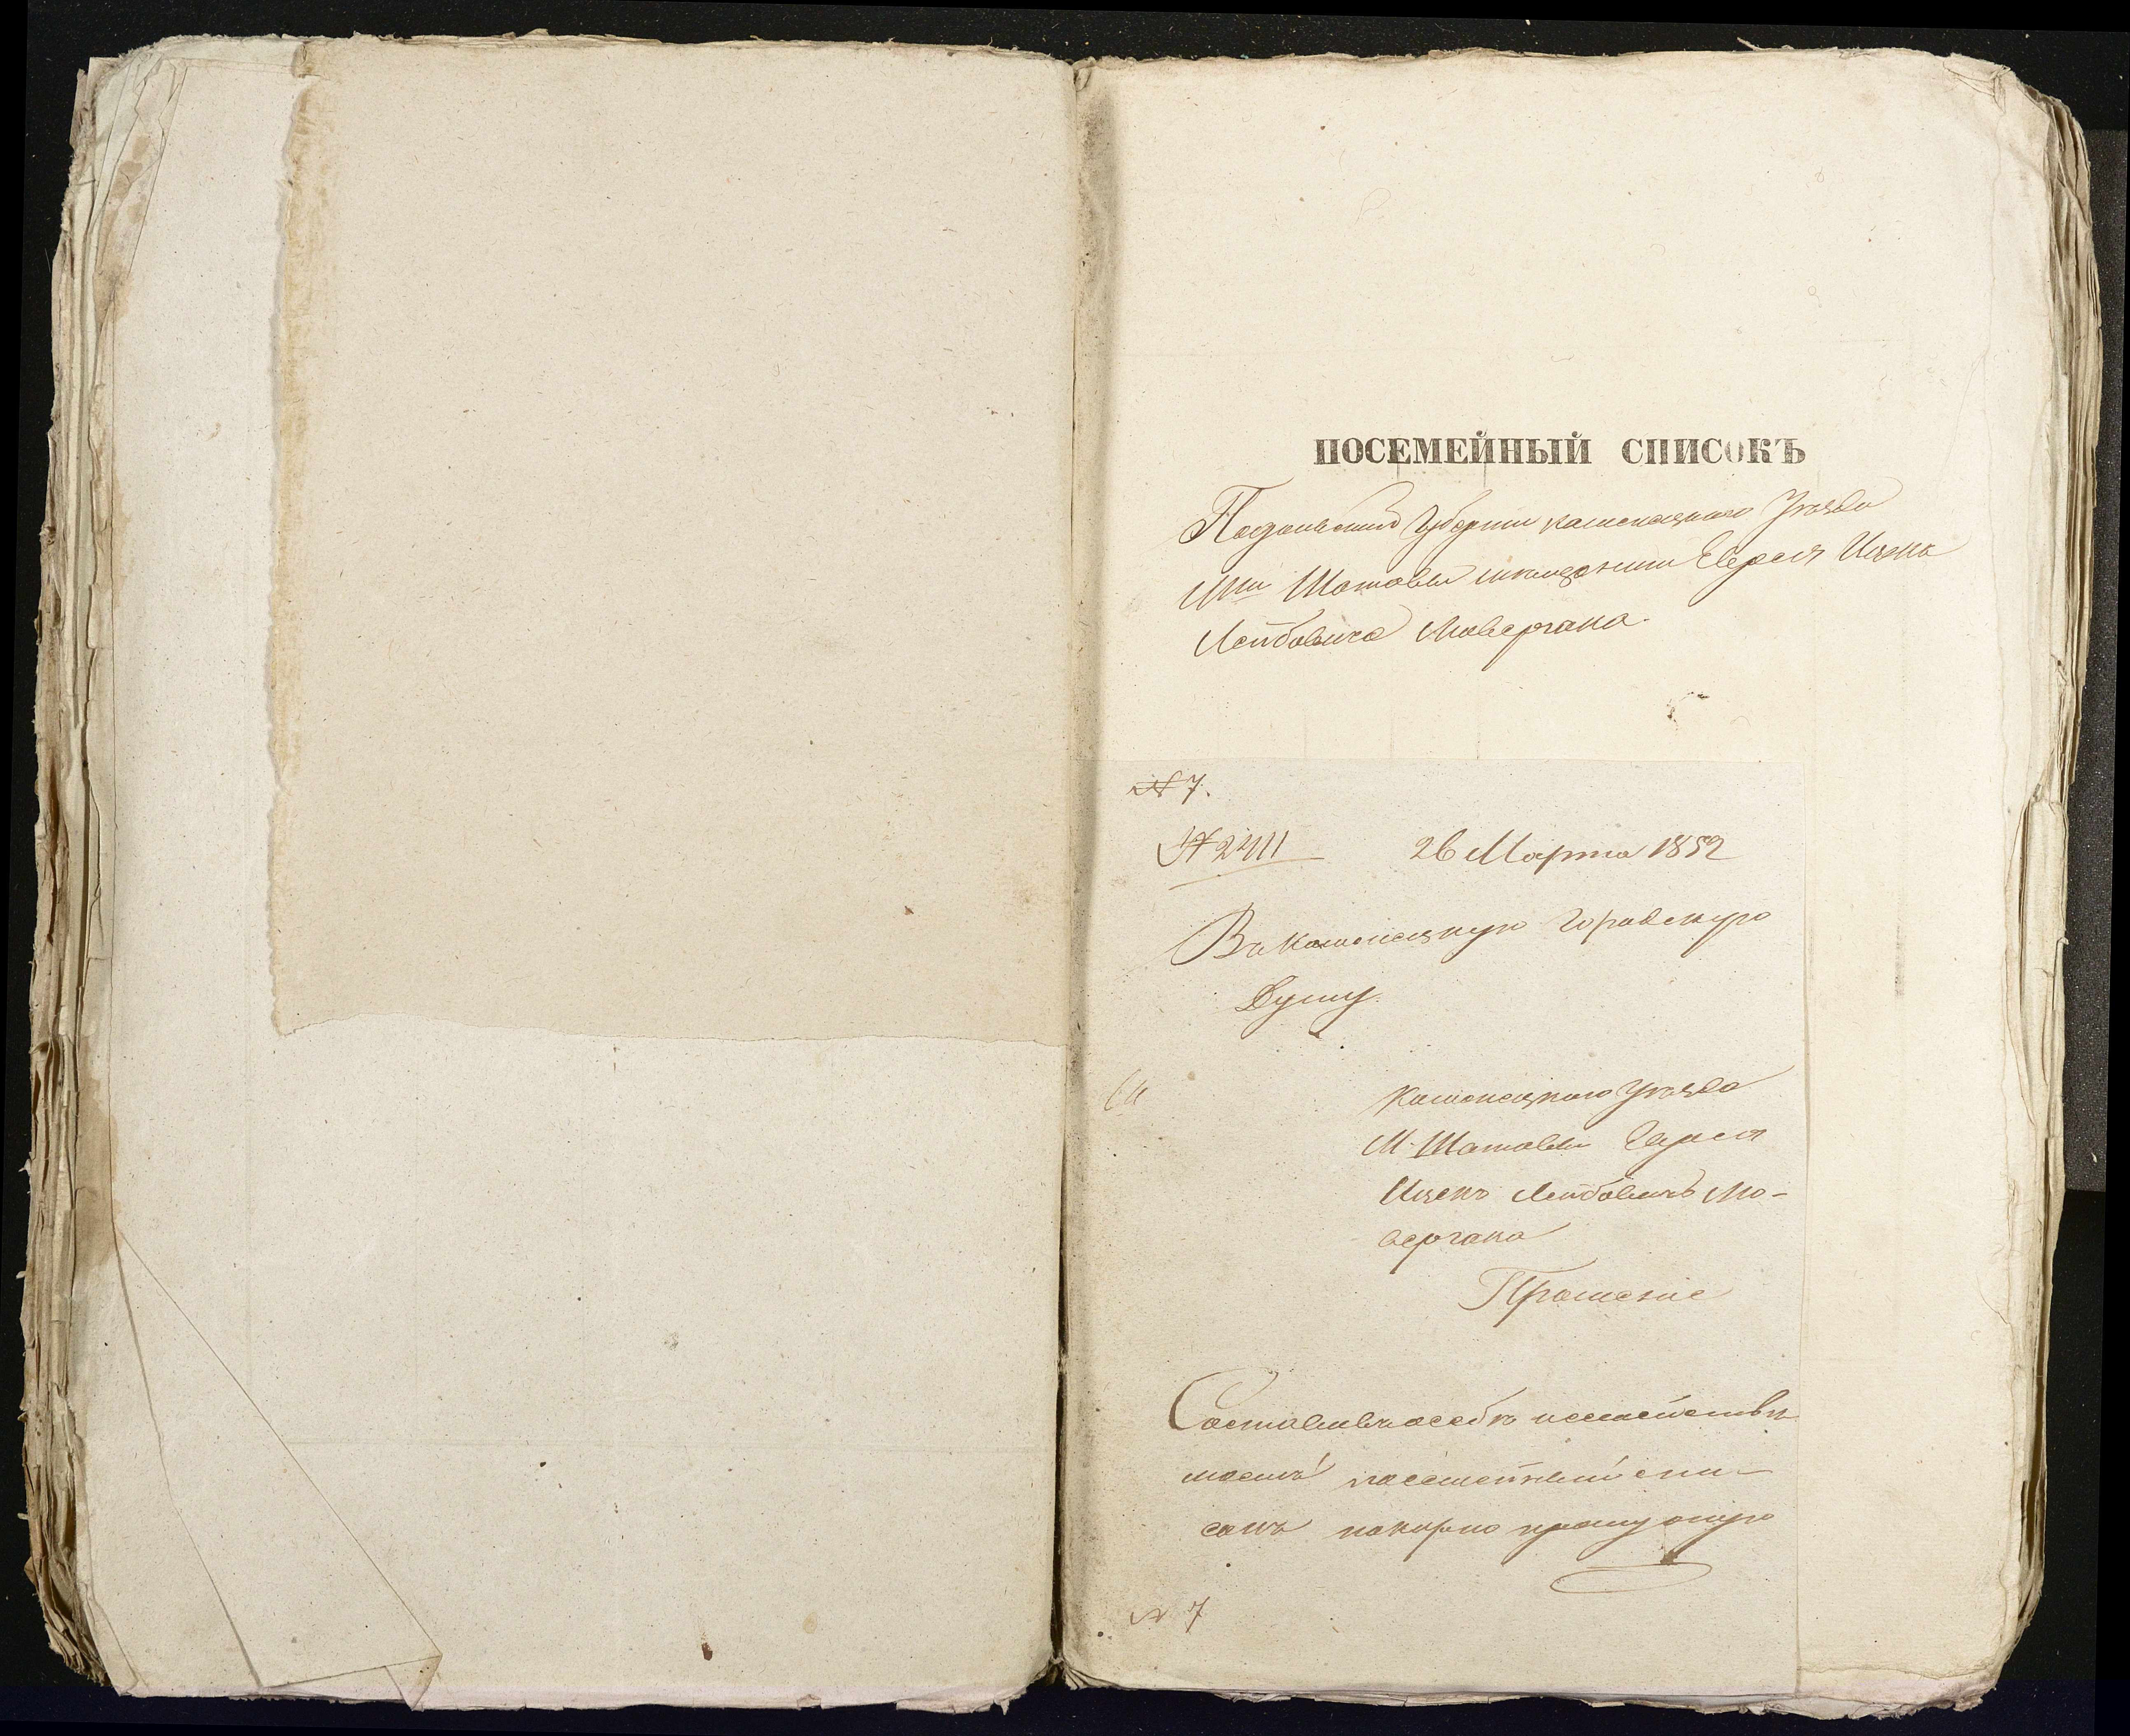 ПОСЕМЕЙНЫЙ СПИСОКЪ
Подольской Губерніи Каменецкаго Уѣзда
Шатавы Еврея Ицка
Лейбовича Мовергана.
№ 7.
№ 2411 26 Марта 1852
Въ Каменецкую Городскую
Думу.
Каменецкаго Уѣзда
М. Шатавы Еврея
Ицка Лейбовича Мо-
вергана
Прошеніе
Составивъ о себѣ и семействѣ
моемъ посемейный спи-
сокъ покорно прошу оную
№ 7